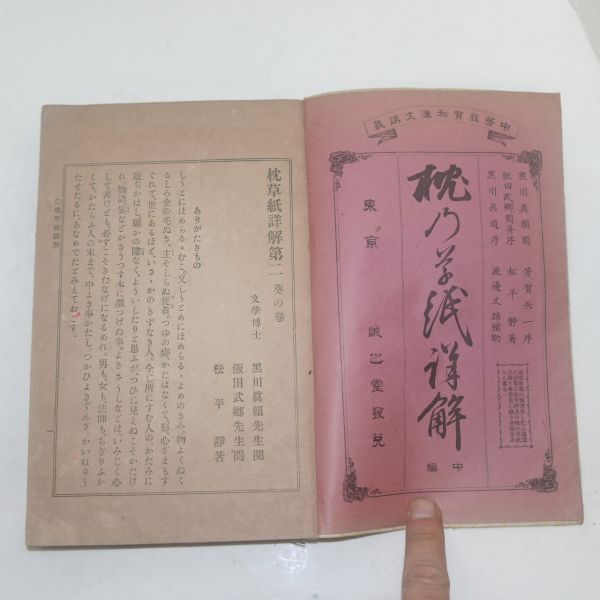 中等敎育和漢文講義
黑川眞頼閲
飯田武鄕閲并序
黑川眞道序
芳賀矢一序
松平靜著
渡邊文雄補助
枕乃草紙詳解
中編
東京 誠之堂發兌
枕草紙詳解第二 葵の卷
文學博士 黑川眞頼先生閲
飯田武鄕先生閲
松平靜著
ありがたきもの
しうとにほめらるゝむこ。又しうとめにほめらるゝよめのきみ。物よくぬく
るしろ金の毛ぬき。主そしらぬ從者。つゆの癖、かたはなくて、形心ざまもす
ぐれて、世にあるほど、いさゝかのきずなき人。全じ所にすむ人の、かたみに
慙ぢかはし、聊かの隙なく、よういしたりと思ふが、つひに見えぬこそかたけ
れ。物語、集などかきうつす本に墨つけぬ事。よきさうしなどは、いみじく心
して書けども、必ずこそきたなげになるめれ。男も、女も、法師も、ちぎりふか
くて、かたらふ人の末まで、中よき事かたし。つかひよきずんざ。かいねりう
たせたるに、あなめでたとみえておこす。